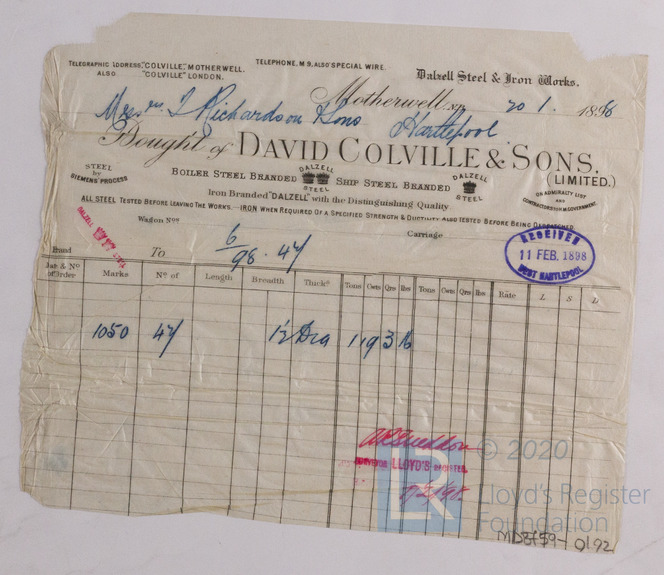 TELEGRAPHIC ADDRESS, "COLVILLE", MOTHERWELL.
ALSO "COLVILLE" LONDON.
TELEPHONE, Nº 9, ALSO SPECIAL WIRE.
Dalzell Steel & Iron Works.
Motherwell, N.B. 20 1. 1898
Messrs T Richardson Sons Hartlepool
Bought of DAVID COLVILLE & SONS.
(LIMITED.)
STEEL
by
SIEMENS PROCESS
BOILER STEEL BRANDED DALZELL STEEL SHIP STEEL BRANDED DALZELL STEEL
ON ADMIRALTY LIST
AND
CONTRACTORS TO H.M. GOVERNMENT.
Iron Branded "DALZELL" with the Distinguishing Quality
ALL STEEL TESTED BEFORE LEAVING THE WORKS.—IRON WHEN REQUIRED OF A SPECIFIED STRENGTH & DUCTILITY ALSO TESTED BEFORE BEING DESPATCHED.
DALZELL
Wagon Nos
Carriage
RECEIVED
11 FEB. 1898
WEST HARTLEPOOL
Brand
To 6/98.47
Date & Nº of Order Marks Nº of Length Breadth Thickˢ Tons Cwts Qrs lbs Tons Cwts Qrs lbs Rate L S D
1050 47 1½ Dia 1 19 3 16
SURVEYOR LLOYD'S REGISTER
© 2020
LR
Lloyd's Register
Foundation